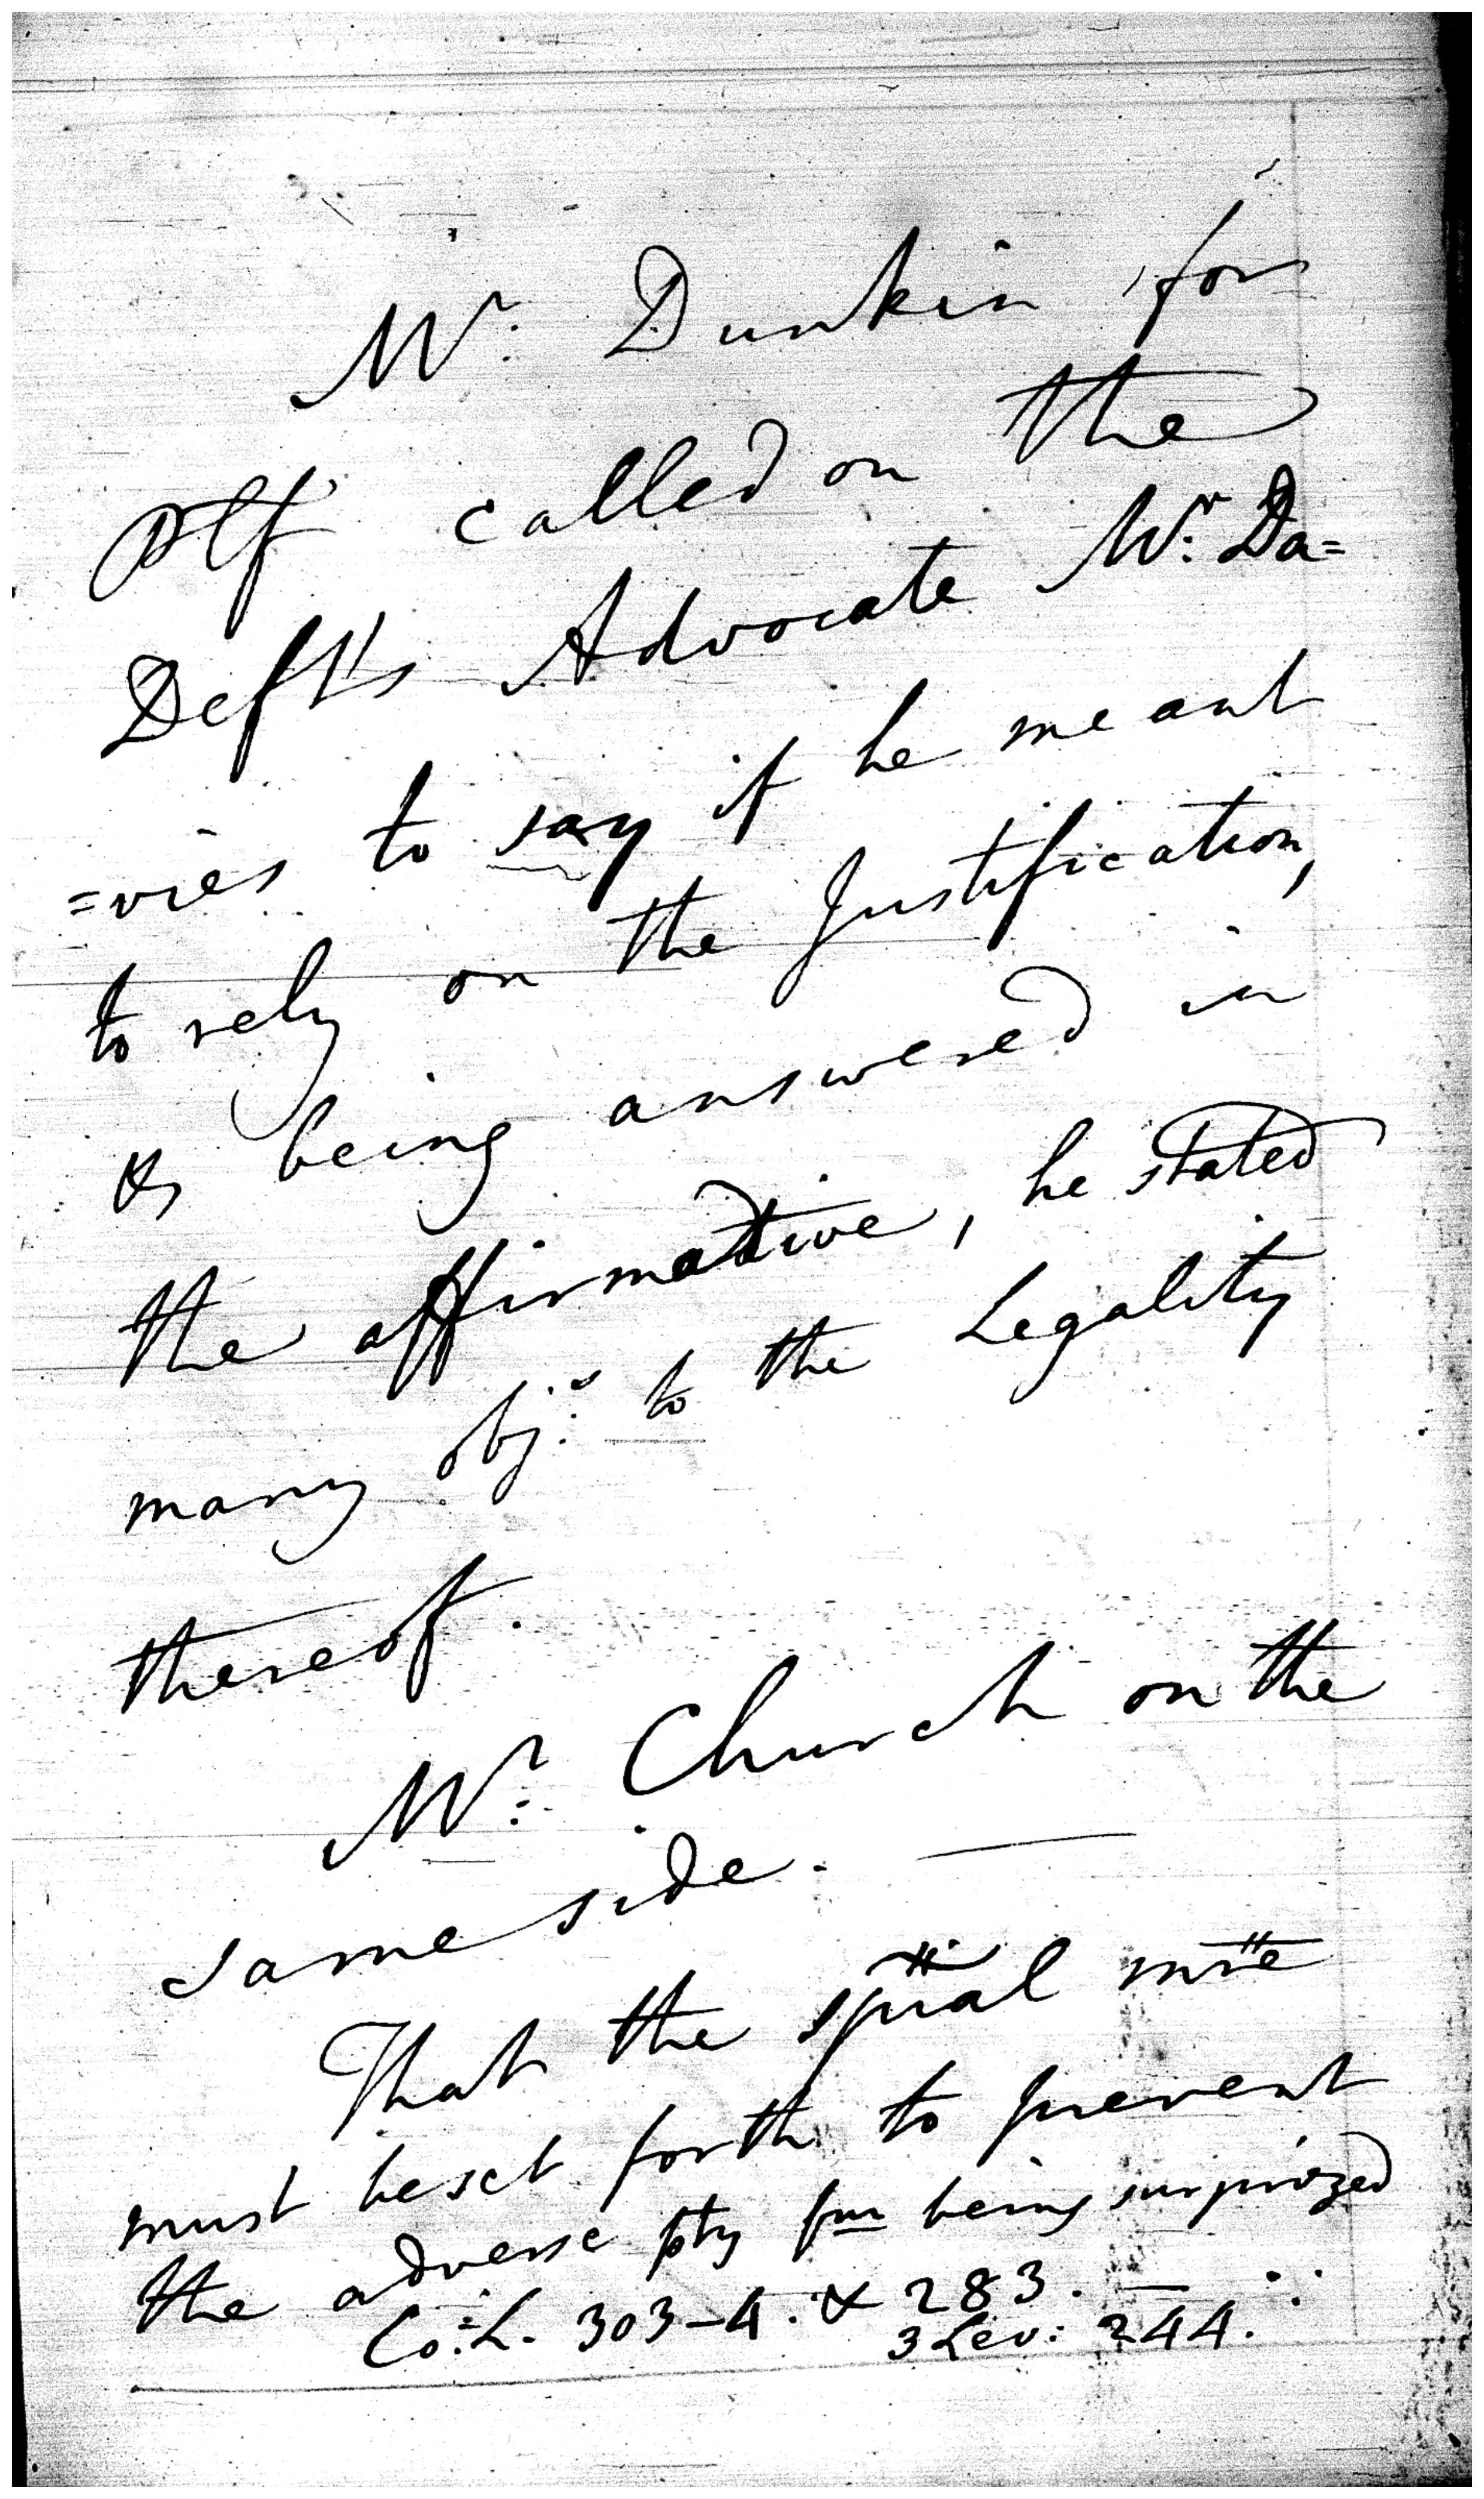 Mr. Dunkin for
Plf called on the
Deft's Advocate Mr. Da=
=vies to say if he meant
to rely on the Justification,
& being answered in
the affirmative, he stated
many obj:s to the Legality
thereof.
Mr. Church on the
same side. —
That the spial mre
must be set forth to prevent
the adverse pty fm being surprized
Co: L. 303-4. & 283. —
3 Lev: 244.